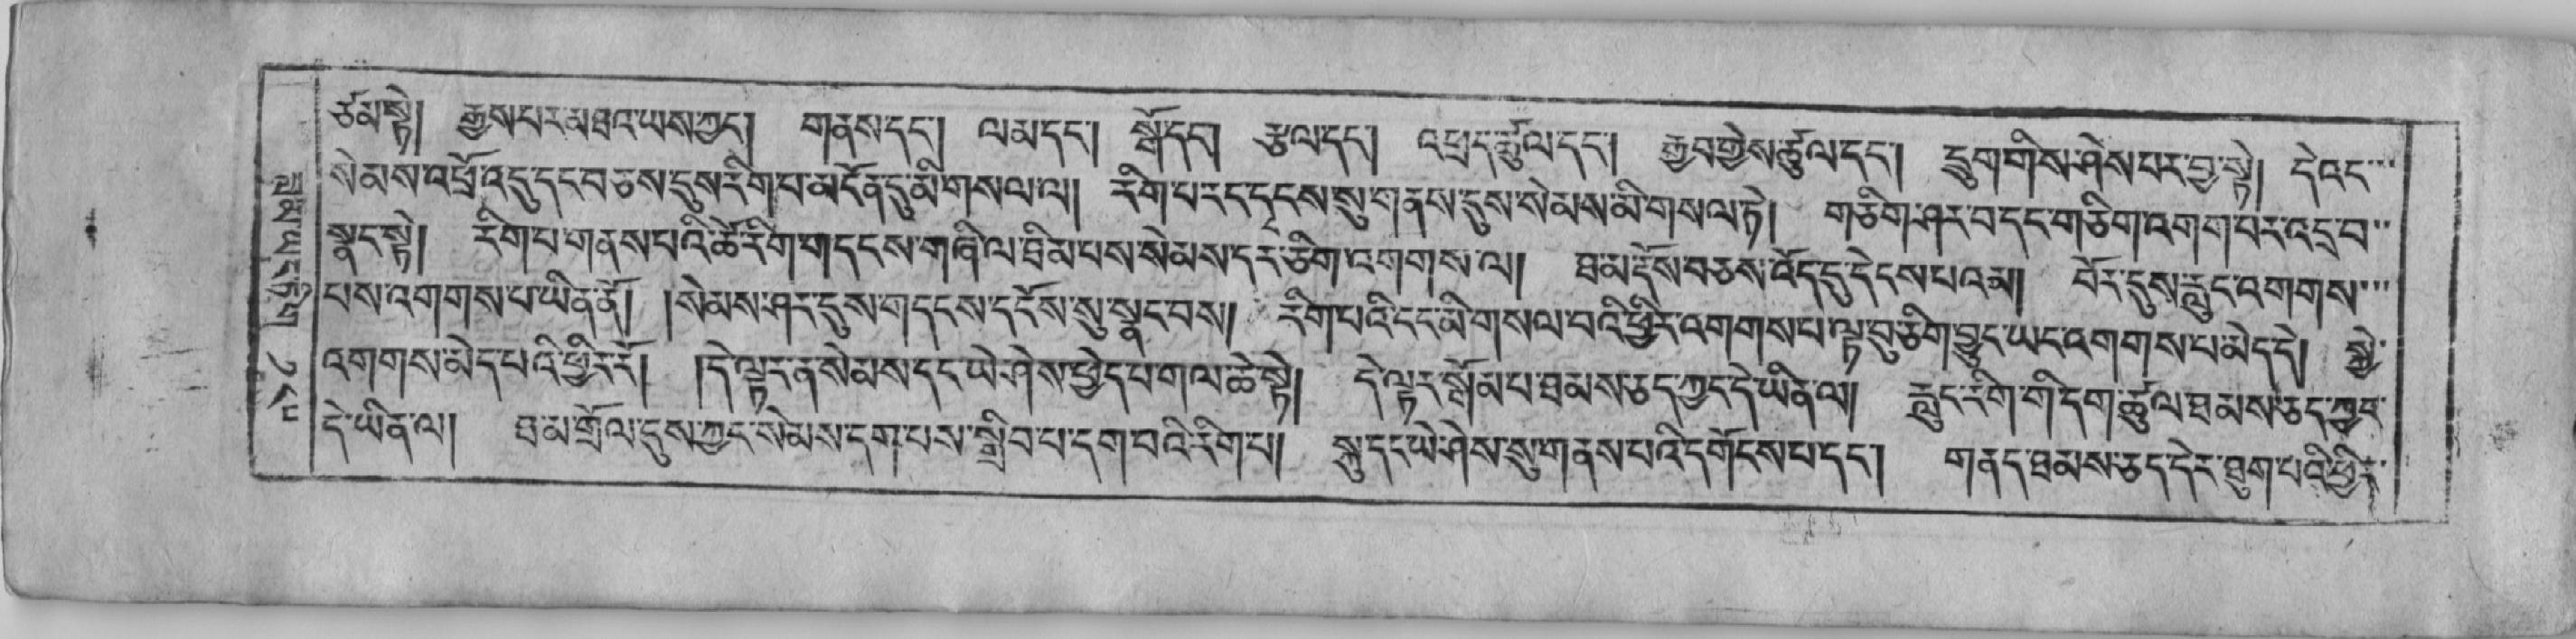 ཙམ་སྟེ། རྒྱས་པར་མཐའ་ཡས་ཀྱང༌། གནས་དང༌། ལམ་དང༌། སྒོ་དང༌། རྩལ་དང༌། འཕྲད་ཚུལ་དང༌། རྒྱབ་གྱེས་ཚུལ་དང༌། དྲུག་གིས་ཤེས་པར་བྱ་སྟེ། དེ་འང་
སེམས་འཕྲོ་འདུ་དང་བཅས་དུས་རིག་པ་མངོན་དུ་མི་གསལ་ལ། རིག་པ་རང་དྭངས་སུ་གནས་དུས་སེམས་མི་གསལ་ཏེ། གཅིག་ཤར་བ་དང་གཅིག་འགག་པར་འདྲ་བ་
སྣང་སྟེ། རིག་པ་གནས་པའི་ཚེ་རིག་གདངས་གཞི་ལ་ཐིམ་པས་སེམས་དར་ཅིག་འགགས་ལ། ཐམ་དོས་བཅས་འོད་དུ་དེངས་པའམ། པོར་དུས་རླུང་འགགས་
པས་འགགས་པ་ཡིན་ནོ། །སེམས་ཤར་དུས་གདངས་དངོས་སུ་སྣང་བས། རིག་པའི་ངང་མི་གསལ་བའི་ཕྱིར་འགགས་པ་ལྟ་བུ་ཅིག་བྱུང་ཡང་འགགས་པ་མེད་དེ། སྐྱེ་
འགགས་མེད་པའི་ཕྱིར་རོ། །དེ་ལྟར་ན་སེམས་དང་ཡེ་ཤེས་ཕྱེད་པ་གལ་ཆེ་སྟེ། དེ་ལྟར་སྒོམ་པ་ཐམས་ཅད་ཀྱང་དེ་ཡིན་ལ། རླུང་རིག་གི་དག་ཚུལ་ཐམས་ཅད་ཀྱང་
དེ་ཡིན་ལ། ཐ་མ་གྲོལ་དུས་ཀྱང་སེམས་དག་པས་སྒྲིབ་པ་དག་པའི་རིག་པ། སྐུ་དང་ཡེ་ཤེས་སུ་གནས་པའི་དགོངས་པ་དང༌། གནད་ཐམས་ཅད་དེར་ཐུག་པའི་ཕྱིར་